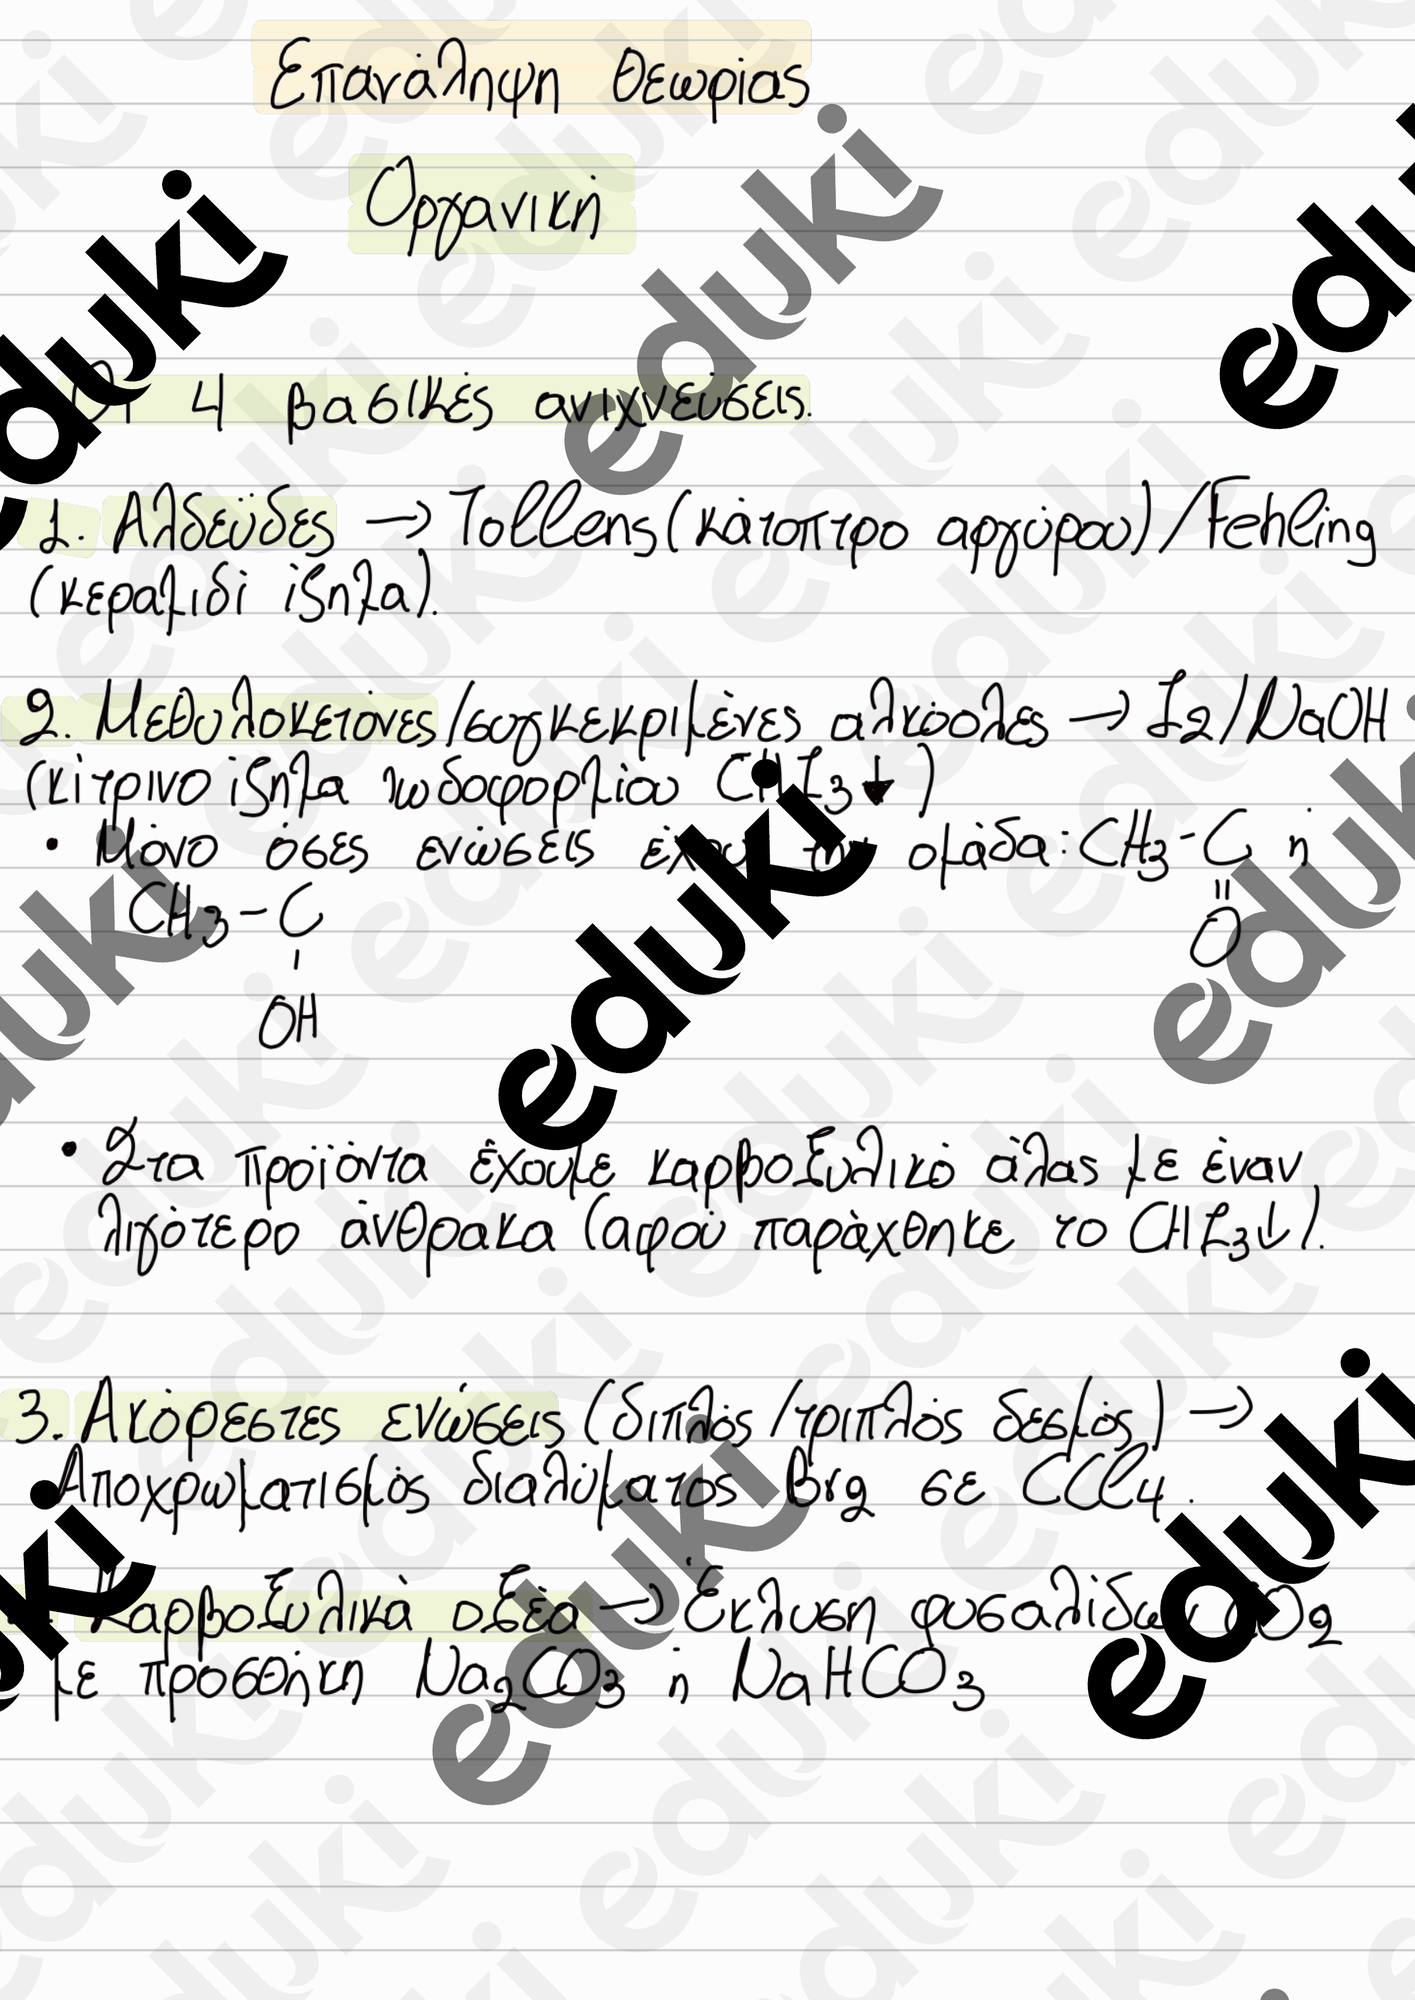 Επανάληψη Θεωρίας
Οργανική
Οι 4 βασικές ανιχνεύσεις.
1. Αλδεΰδες → Tollens (κάτοπτρο αργύρου) / Fehling
(κεραμιδί ίζημα).
2. Μεθυλοκετόνες/συγκεκριμένες αλκοόλες → I2/NaOH
(κίτρινο ίζημα ιωδοφορμίου CHI3↓)
• Μόνο όσες ενώσεις έχουν την ομάδα: CH3-C ή
=
O
CH3-C
-
OH
• Στα προϊόντα έχουμε καρβοξυλικό άλας με έναν
λιγότερο άνθρακα (αφού παράχθηκε το CHI3↓).
3. Ακόρεστες ενώσεις (διπλός/τριπλός δεσμός) →
Αποχρωματισμός διαλύματος Br2 σε CCl4.
Καρβοξυλικά οξέα → Έκλυση φυσαλίδων CO2
με προσθήκη Na2CO3 ή NaHCO3
eduki
eduki
eduki
eduki
eduki
eduki
eduki
eduki
eduki
eduki